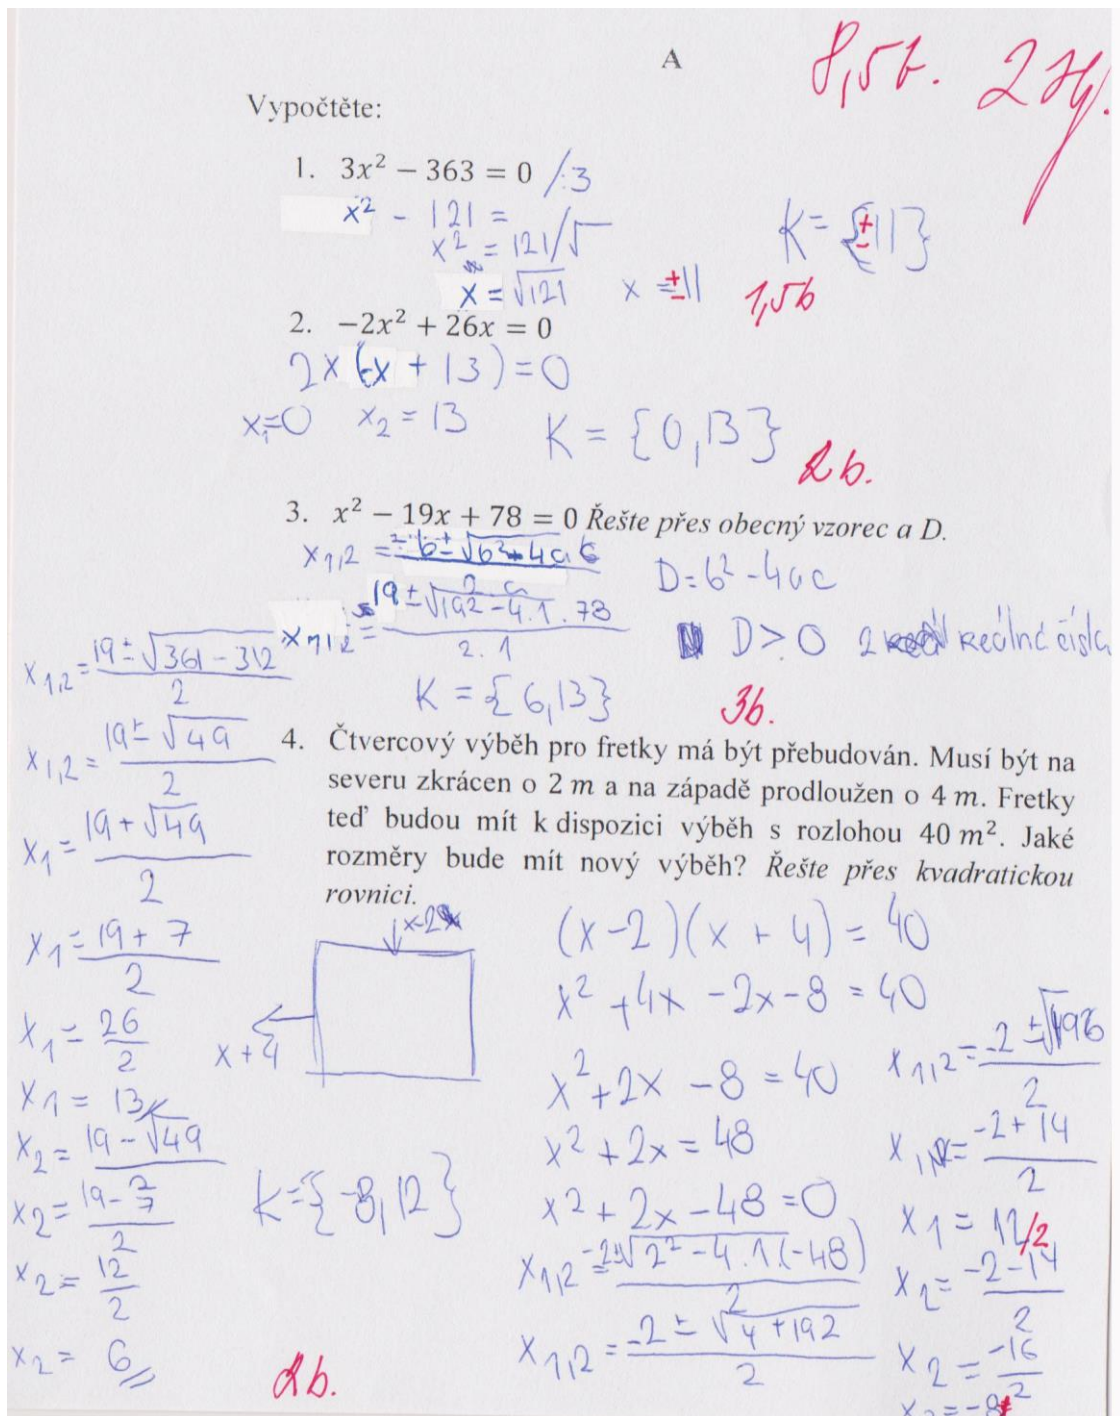 A
8,5b.
Vypočtěte:
1. 3x² − 363 = 0 /:3
x² - 121 =
x² = 121/√
x = √121 x = ±11
K = {±11}
1,5b
2. −2x² + 26x = 0
2x(-x + 13) = 0
x₁=0 x₂ = 13 K = {0,13}
2b.
3. x² − 19x + 78 = 0 Řešte přes obecný vzorec a D.
x₁,₂ = -b±√b²-4ac / 2a
D=b²-4ac
x₁,₂ = 19±√192-4.1.78 / 2.1
D > 0 2 reálná čísla
K = {6,13}
3b.
x₁,₂ = 19±√361-312 / 2
x₁,₂ = 19±√49 / 2
x₁ = 19+√49 / 2
x₁ = 19+7 / 2
x₁ = 26/2
x₁ = 13
x₂ = 19-√49 / 2
x₂ = 19-7 / 2
x₂ = 12/2
x₂ = 6
4. Čtvercový výběh pro fretky má být přebudován. Musí být na
severu zkrácen o 2 m a na západě prodloužen o 4 m. Fretky
teď budou mít k dispozici výběh s rozlohou 40 m². Jaké
rozměry bude mít nový výběh? Řešte přes kvadratickou
rovnici.
x-2
x+4
(x-2)(x+4) = 40
x² +4x -2x-8 = 40
x²+2x -8 = 40
x²+2x = 48
x²+2x-48=0
x₁,₂ = -2±√2²-4.1.(-48) / 2
x₁,₂ = -2±√4+192 / 2
x₁,₂ = -2±√196 / 2
x₁ = -2+14 / 2
x₁ = 12/2
x₂ = -2-14 / 2
x₂ = -16/2
x₂ = -8
K={-8,12}
2b.